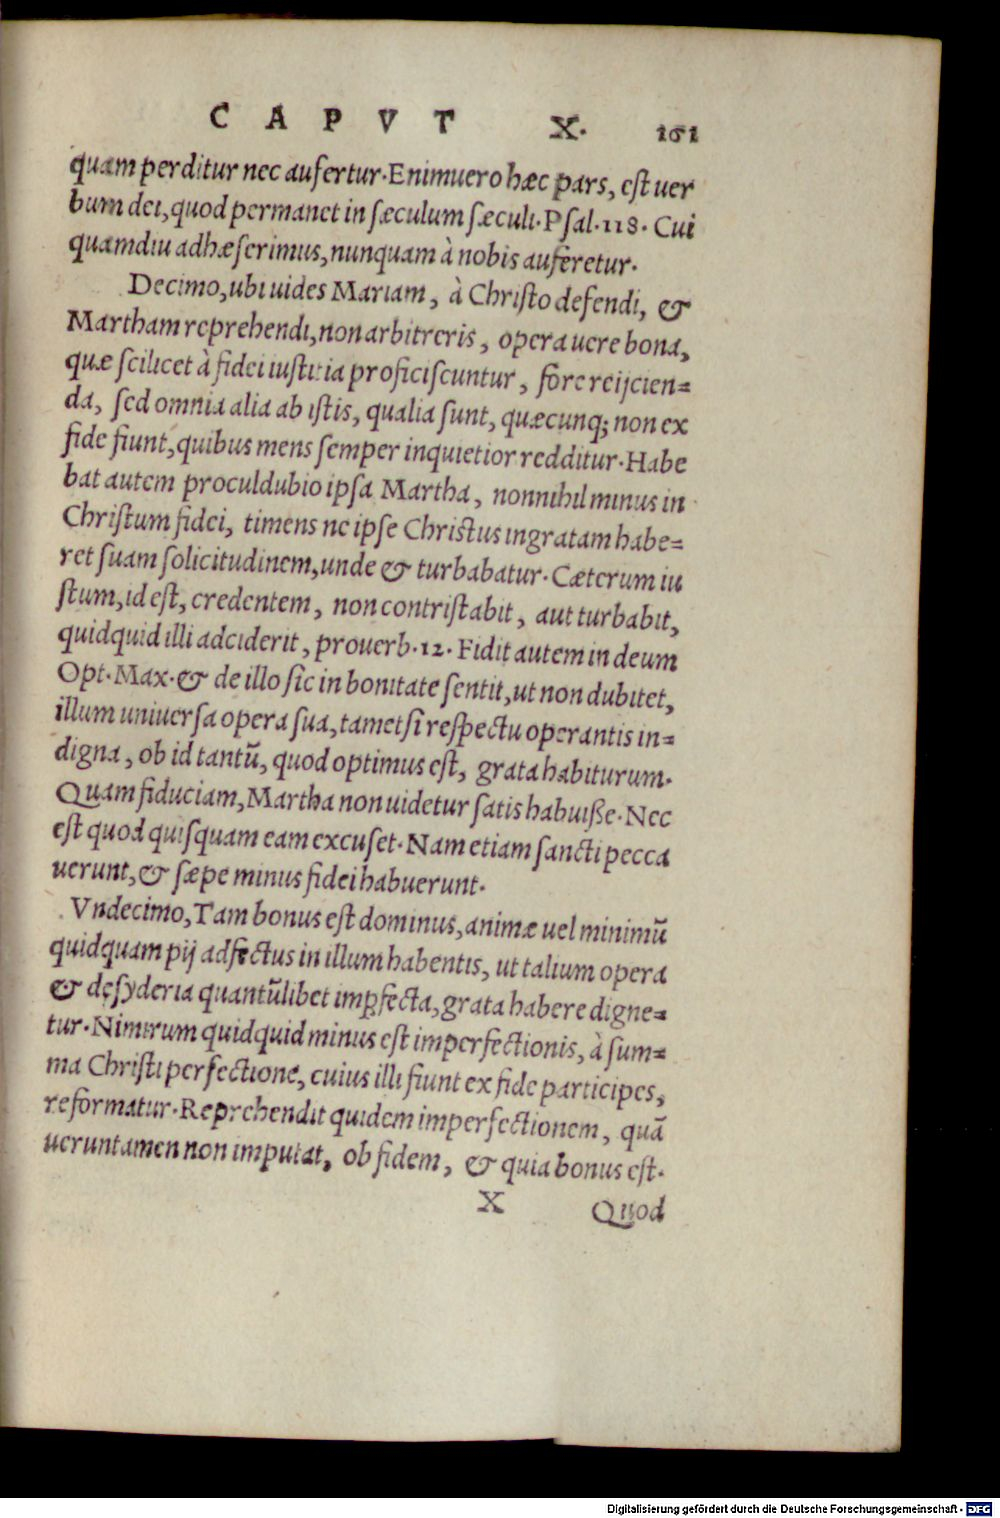 CAPVT X. 161
quam perditur nec aufertur. Enimuero hæc pars, est uer
bum dei, quod permanet in sæculum sæculi. Psal. 118. Cui
quamdiu adhæserimus, nunquam à nobis auferetur.
Decimo, ubi uides Mariam, à Christo defendi, &
Martham reprehendi, non arbitreris, opera uere bona,
quæ scilicet à fidei iustitia proficiscuntur, fore reijcien=
da, sed omnia alia ab istis, qualia sunt, quæcunq; non ex
fide fiunt, quibus mens semper inquietior redditur. Habe
bat autem proculdubio ipsa Martha, nonnihil minus in
Christum fidei, timens ne ipse Christus ingratam habe=
ret suam solicitudinem, unde & turbabatur. Cæterum iu
stum, id est, credentem, non contristabit, aut turbabit,
quidquid illi adciderit, prouerb. 12. Fidit autem in deum
Opt. Max. & de illo sic in bonitate sentit, ut non dubitet,
illum uniuersa opera sua, tametsi respectu operantis in=
digna, ob id tantũ, quod optimus est, grata habiturum.
Quam fiduciam, Martha non uidetur satis habuiße. Nec
est quod quisquam eam excuset. Nam etiam sancti pecca
uerunt, & sæpe minus fidei habuerunt.
Vndecimo, Tam bonus est dominus, animæ uel minimũ
quidquam pij adfectus in illum habentis, ut talium opera
& desyderia quantũlibet imꝑfecta, grata habere digne=
tur. Nimirum quidquid minus est imperfectionis, à sum=
ma Christi perfectione, cuius illi fiunt ex fide participes,
reformatur. Reprehendit quidem imperfectionem, quã
ueruntamen non imputat, ob fidem, & quia bonus est.
X Quod
Digitalisierung gefördert durch die Deutsche Forschungsgemeinschaft - DFG